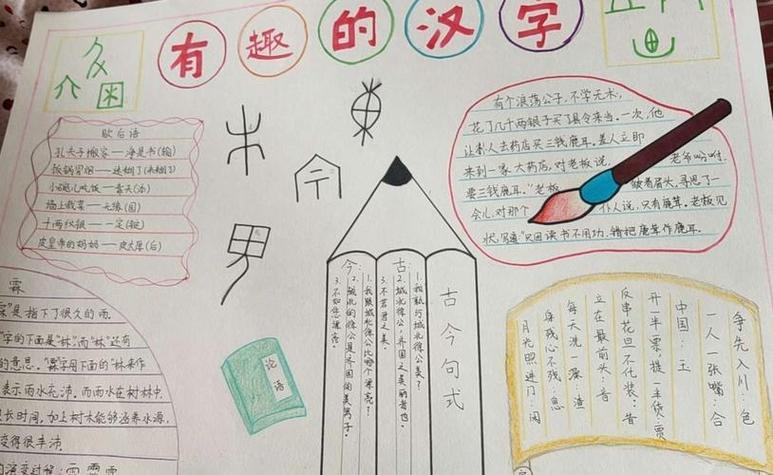 有趣的汉字
歇后语
孔夫子搬家——净是书(输)
小葱儿吃饭——
墙上栽菜——无缘(园)
十两纹银——一定(锭)
皮皇帝的妈妈——皮太厚(后)
霖
霖”是指下了很久的雨.
”字的下面是“林”,而“林”还有
的意思。“霖”字用下面的“林”来作
表示雨水充沛.而雨水在树林中.
很长时间,加上树木能够涵养水源.
变得很丰沛.
的演变过程:
论语
古今句式
古:
1.我孰与城北徐公美?
2.城北徐公,齐国之美丽者也。
3.不若君之美。
今:
1.我跟城北徐公比哪个漂亮?
2.城北的徐公是齐国的美男子。
3.不如您漂亮。
有个浪荡公子,不学无术,
花了几千两银子买了县令来当。一次,他
让差人去药店买三钱鹿茸。差人立即
来到一家大药店,对老板说, 老爷吩咐.
要三钱鹿耳。”老板 皱着眉头,寻思了一
会儿,对那个 仆人说,只有鹿茸。老板见
状,写道:“只因读书不用功,错把鹿茸作鹿耳。
争先入川:色
一人一张嘴:合
中国:玉
开一半票,提一半货:贾
反串花旦不化装:昔
立在最前头:音
每天洗一澡:渣
身残心不残:息
月光照进门:闲